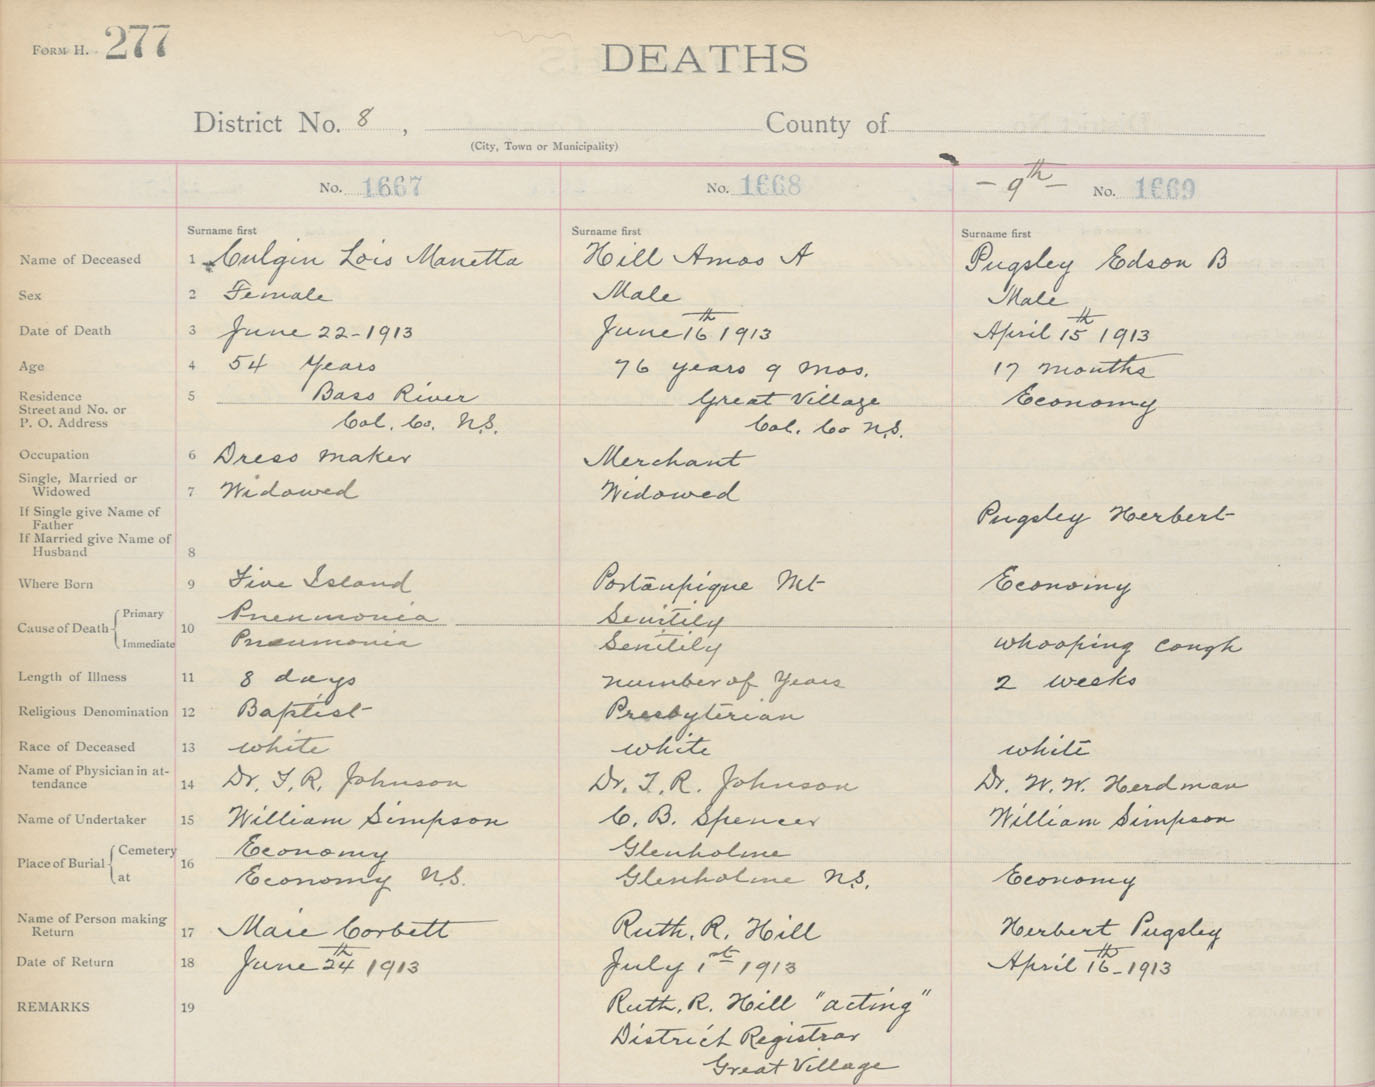 FORM H. 277
DEATHS
District No. 8 , County of
(City, Town or Municipality)
No. 1667 No. 1668 – 9th – No. 1669
Surname first Surname first Surname first
Name of Deceased 1 Culgin Lois Manetta Hill Amos A Pugsley Edson B
Sex 2 Female Male Male
Date of Death 3 June 22-1913 June 16th 1913 April 15th 1913
Age 4 54 Years 76 years 9 mos. 17 months
Residence 5 Bass River Great Village Economy
Street and No. or
P. O. Address Col. Co. N.S. Col. Co N.S.
Occupation 6 Dress maker Merchant
Single, Married or
Widowed 7 Widowed Widowed
If Single give Name of
Father Pugsley Herbert
If Married give Name of
Husband 8
Where Born 9 Five Island Portaupique Mt Economy
Cause of Death 10
Primary Pneumonia Senitily
Immediate Pneumonia Senitily whooping cough
Length of Illness 11 8 days number of Years 2 weeks
Religious Denomination 12 Baptist Presbyterian
Race of Deceased 13 white white white
Name of Physician in at-
tendance 14 Dr. T. R. Johnson Dr. T. R. Johnson Dr. W. W. Herdman
Name of Undertaker 15 William Simpson C. B. Spencer William Simpson
Place of Burial 16
Cemetery Economy Glenholme
at Economy N.S. Glenholme N.S. Economy
Name of Person making
Return 17 Maie Corbett Ruth. R. Hill Herbert Pugsley
Date of Return 18 June 24th 1913 July 1st 1913 April 16th-1913
REMARKS 19 Ruth. R. Hill "acting"
District Registrar
Great Village